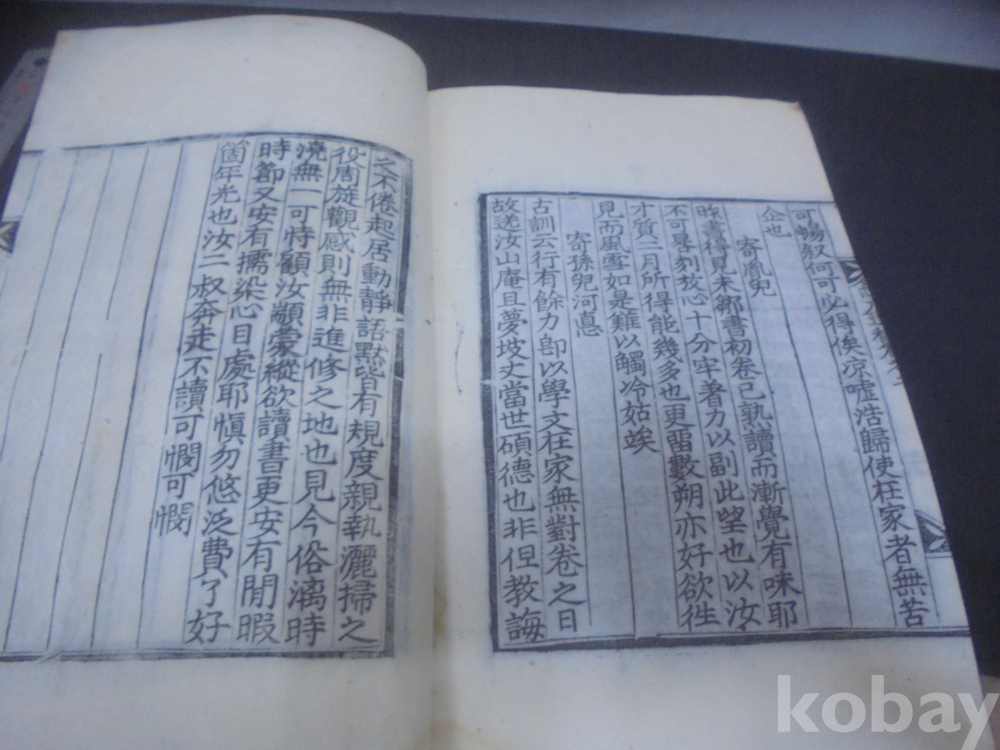 可暢敍何可必得俟凉噓浩歸使在家者無苦
企也
寄胤兒
昨書得見未鄒書初卷已熟讀而漸覺有味耶
不可晷刻放心十分牢著力以副此望也以汝
才質二月所得能幾多也更留數朔亦好欲徃
見而風雪如是難以觸冷姑竢
寄孫兒河悳
古訓云行有餘力卽以學文在家無對卷之日
故送汝山庵且夢坡丈當世碩德也非但教誨
之不倦起居動靜語默皆有規度親執灑掃之
役周旋觀感則無非進修之地也見今俗漓時
澆無一可恃顧汝顓蒙縱欲讀書更安有閒暇
時節又安有擩染心目處耶愼勿悠泛費了好
箇年光也汝二叔奔走不讀可憫可憫
kobay